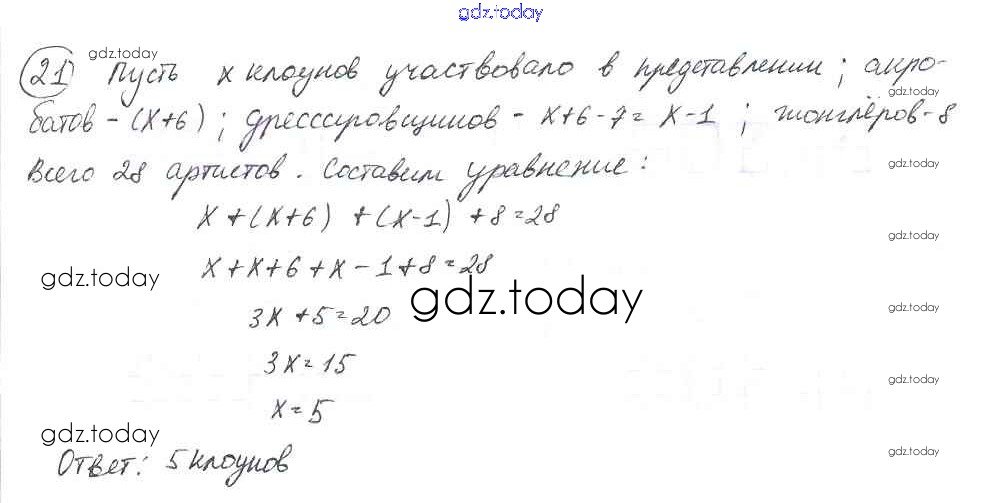 gdz.today
gdz.today
21) Пусть x клоунов участвовало в представлении; акро-
gdz.today
батов - (x+6); дрессировщиков - x+6-7=x-1; жонглёров-8
Всего 28 артистов. Составим уравнение:
gdz.today
x+(x+6)+(x-1)+8=28
gdz.today
x+x+6+x-1+8=28
gdz.today
gdz.today
gdz.today
3x+5=20
3x=15
gdz.today
x=5
gdz.today
gdz.today
Ответ: 5 клоунов